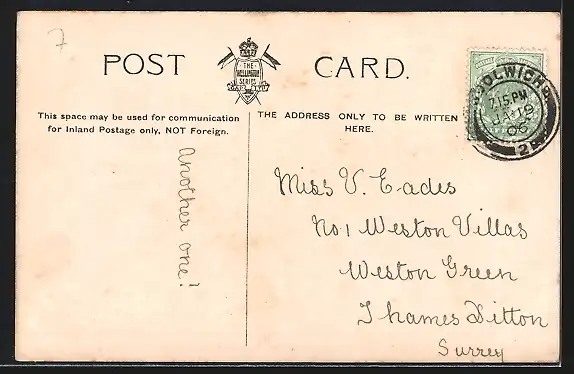 7
POST CARD.
THE
WELLINGTON
SERIES
This space may be used for communication
for Inland Postage only, NOT Foreign.
THE ADDRESS ONLY TO BE WRITTEN
HERE.
another one!
Miss V. Eades
No 1 Weston Villas
Weston Green
Thames Ditton
Surrey
WOOLWICH
7.15 PM
JA 19
06